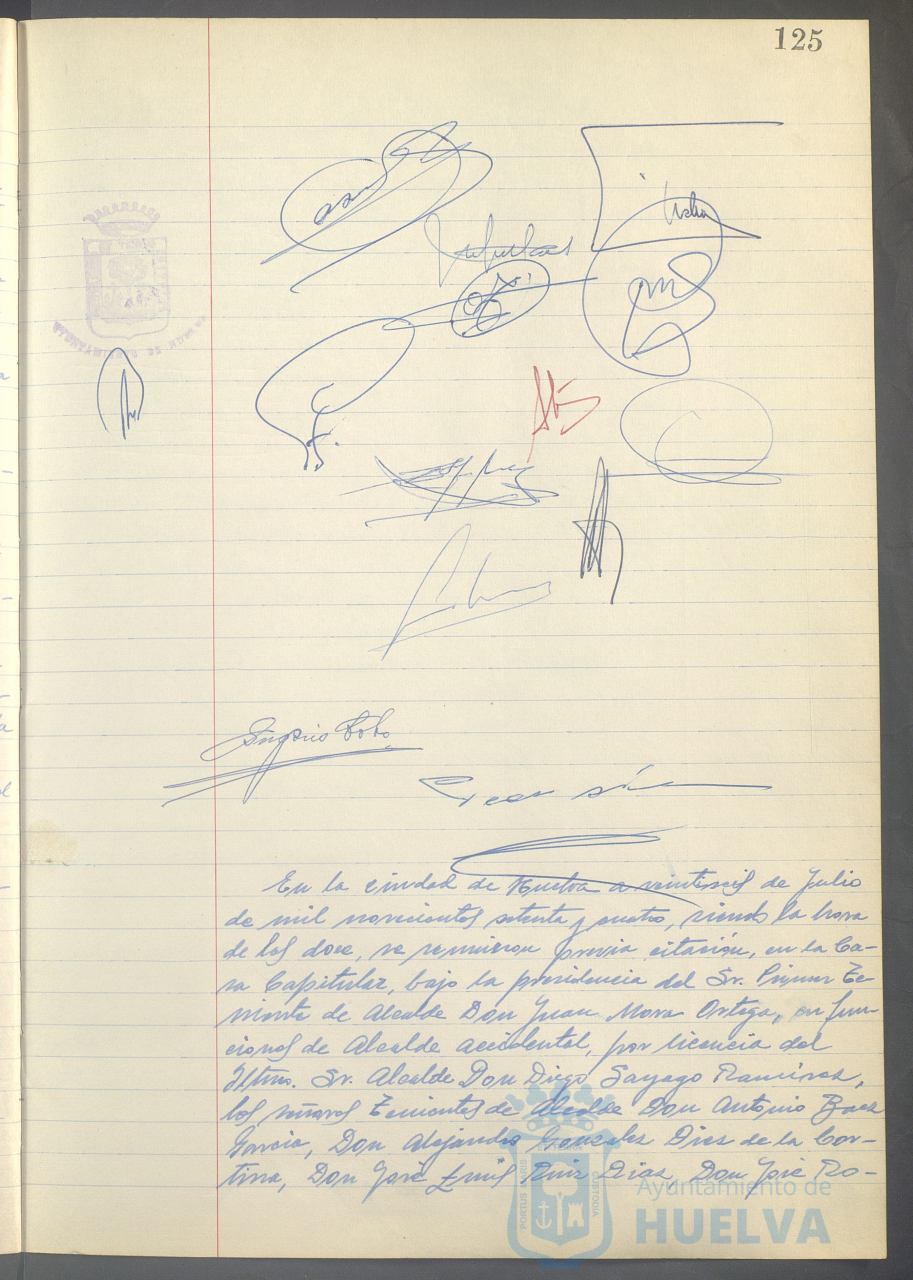 125
Eugenio Toto
En la ciudad de Huelva a veintiseis de Julio
de mil novecientos setenta y cuatro, siendo la hora
de las doce, se reunieron previa citación, en la Ca-
sa Capitular, bajo la presidencia del Sr. Primer Te-
niente de Alcalde Don Juan Mora Ortega, en fun-
ciones de Alcalde accidental, por licencia del
Iltmo. Sr. Alcalde Don Diego Sayago Ramirez,
los señores Tenientes de Alcalde Don Antonio Baez
Garcia, Don Alejandro Gonzalez Diez de la Cor-
tina, Don José Luis Ruiz Diaz, Don José Ro-
PORTUS MARIS
CUSTODIA
Ayuntamiento de
HUELVA